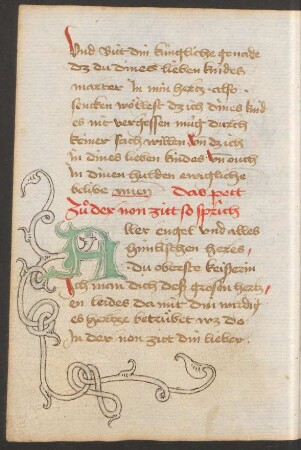 Und bùt din kùngliche genade
dz du dines lieben kindes
marter in min hertz also
sencken wöllest dz ich dines kind
es nit vergessen mùg durch
keiner sach willen Un dz ich
in dines lieben kindes Un ouch
in dinen hulden ewigliche
belibe amen das pett
Zů der non zitt so sprich
Aller engel und alles
himlischen heres,
du obreste keiserin
Ich man dich deß grosen hertz,
en leides da mit din wirdig
es hertze betrùbet wz do
In der non zitt din lieber.